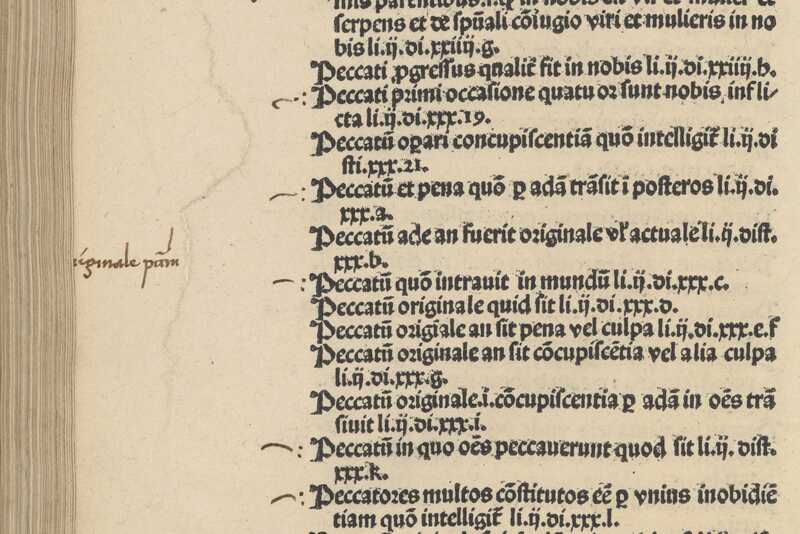 serpens et de spūali cōiugio viri et mulieris in no
bis li.ij.di.xxiiij.g.
Peccati ꝓgressus qualit̄ fit in nobis li.ij.di.xxiiij.h.
Peccati primi occasione quatuor sunt nobis infli-
cta li.ij.di.xxx.19.
Peccatū oꝑari concupiscentiā quō intelligit̄ li.ij.di
sti.xxx.21.
Peccatū et pena quō ꝑ adā trāsit ī posteros li.ij.di.
xxx.a.
Peccatū ade an fuerit originale vl̓ actuale li.ij.dist.
xxx.b.
originale pctm̄
Peccatū quō intravit in mundū li.ij.di.xxx.c.
Peccatū originale quid sit li.ij.di.xxx.d.
Peccatū origiale an sit pena vel culpa li.ij.di.xxx.e.f
Peccatū originale an sit cōcupiscētia vel alia culpa
li.ij.di.xxx.g.
Peccatū originale.i.cōcupiscentia ꝑ adā in oēs trā
siuit li.ij.di.xxx.i.
Peccatū in quo oēs peccaverunt quod sit li.ij.dist.
xxx.k.
Peccatores multos cōstitutos eē ꝑ vnins inobidiē
tiam quō intelligit̄ li.ij.di.xxx.l.